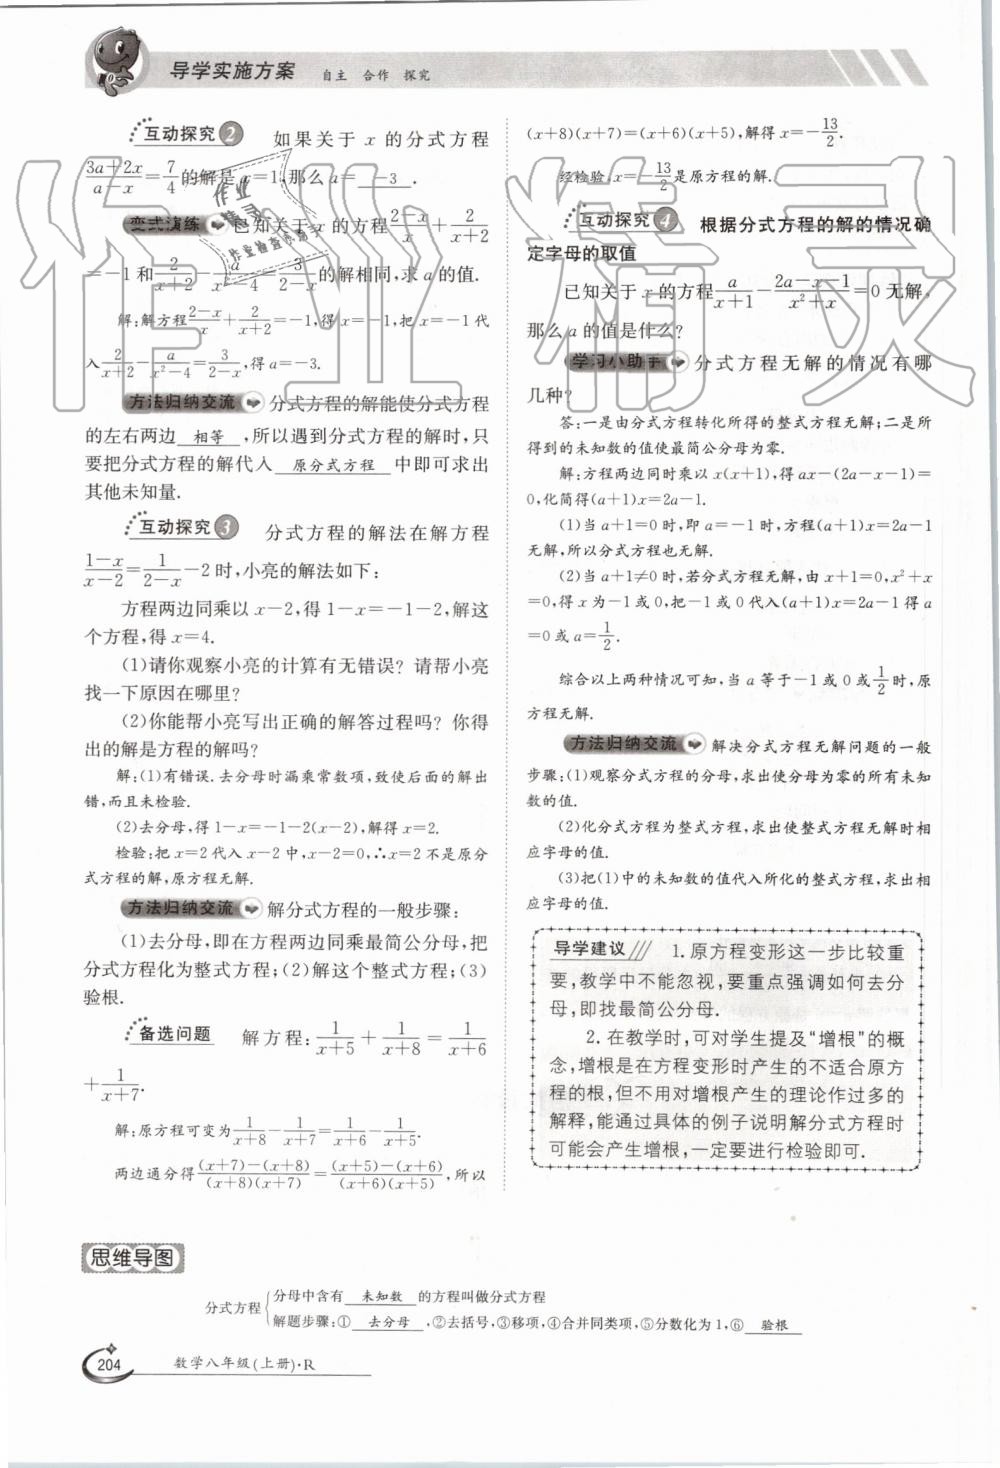 导学实施方案 自主 合作 探究
互动探究2 如果关于 x 的分式方程
(3a+2x)/(a-x)=7/4的解是 x=1,那么 a= -3 .
变式演练 已知关于 x 的方程(2-x)/x+2/(x+2)
=-1和2/(x+2)-a/(x²-4)=3/(2-x)的解相同,求 a 的值.
解:解方程(2-x)/x+2/(x+2)=-1,得 x=-1,把 x=-1代
入2/(x+2)-a/(x²-4)=3/(2-x),得 a=-3.
方法归纳交流 分式方程的解能使分式方程
的左右两边 相等 ,所以遇到分式方程的解时,只
要把分式方程的解代入 原分式方程 中即可求出
其他未知量.
互动探究3 分式方程的解法在解方程
(1-x)/(x-2)=1/(2-x)-2时,小亮的解法如下:
方程两边同乘以 x-2,得 1-x=-1-2,解这
个方程,得 x=4.
(1)请你观察小亮的计算有无错误?请帮小亮
找一下原因在哪里?
(2)你能帮小亮写出正确的解答过程吗?你得
出的解是方程的解吗?
解:(1)有错误.去分母时漏乘常数项,致使后面的解出
错,而且未检验.
(2)去分母,得 1-x=-1-2(x-2),解得 x=2.
检验:把 x=2代入 x-2中,x-2=0,∴x=2不是原分
式方程的解,原方程无解.
方法归纳交流 解分式方程的一般步骤:
(1)去分母,即在方程两边同乘最简公分母,把
分式方程化为整式方程;(2)解这个整式方程;(3)
验根.
备选问题 解方程:1/(x+5)+1/(x+8)=1/(x+6)
+1/(x+7).
解:原方程可变为1/(x+8)-1/(x+7)=1/(x+6)-1/(x+5).
两边通分得((x+7)-(x+8))/((x+8)(x+7))=((x+5)-(x+6))/((x+6)(x+5)),所以
(x+8)(x+7)=(x+6)(x+5),解得 x=-13/2.
经检验,x=-13/2是原方程的解.
互动探究4 根据分式方程的解的情况确
定字母的取值
已知关于 x 的方程a/(x+1)-(2a-x-1)/(x²+x)=0 无解,
那么 a 的值是什么?
学习小助手 分式方程无解的情况有哪
几种?
答:一是由分式方程转化所得的整式方程无解;二是所
得到的未知数的值使最简公分母为零.
解:方程两边同时乘以 x(x+1),得 ax-(2a-x-1)=
0,化简得(a+1)x=2a-1.
(1)当 a+1=0时,即 a=-1时,方程(a+1)x=2a-1
无解,所以分式方程也无解.
(2)当 a+1≠0时,若分式方程无解,由 x+1=0,x²+x
=0,得 x 为-1或0,把-1或0代入(a+1)x=2a-1得 a
=0或 a=1/2.
综合以上两种情况可知,当 a 等于-1或0或1/2时,原
方程无解.
方法归纳交流 解决分式方程无解问题的一般
步骤:(1)观察分式方程的分母,求出使分母为零的所有未知
数的值.
(2)化分式方程为整式方程,求出使整式方程无解时相
应字母的值.
(3)把(1)中的未知数的值代入所化的整式方程,求出相
应字母的值.
导学建议 1.原方程变形这一步比较重
要,教学中不能忽视,要重点强调如何去分
母,即找最简公分母.
2.在教学时,可对学生提及“增根”的概
念,增根是在方程变形时产生的不适合原方
程的根,但不用对增根产生的理论作过多的
解释,能通过具体的例子说明解分式方程时
可能会产生增根,一定要进行检验即可.
思维导图
分式方程
分母中含有 未知数 的方程叫做分式方程
解题步骤:① 去分母 ,②去括号,③移项,④合并同类项,⑤分数化为1,⑥ 验根
204 数学八年级(上册)·R
作业精灵